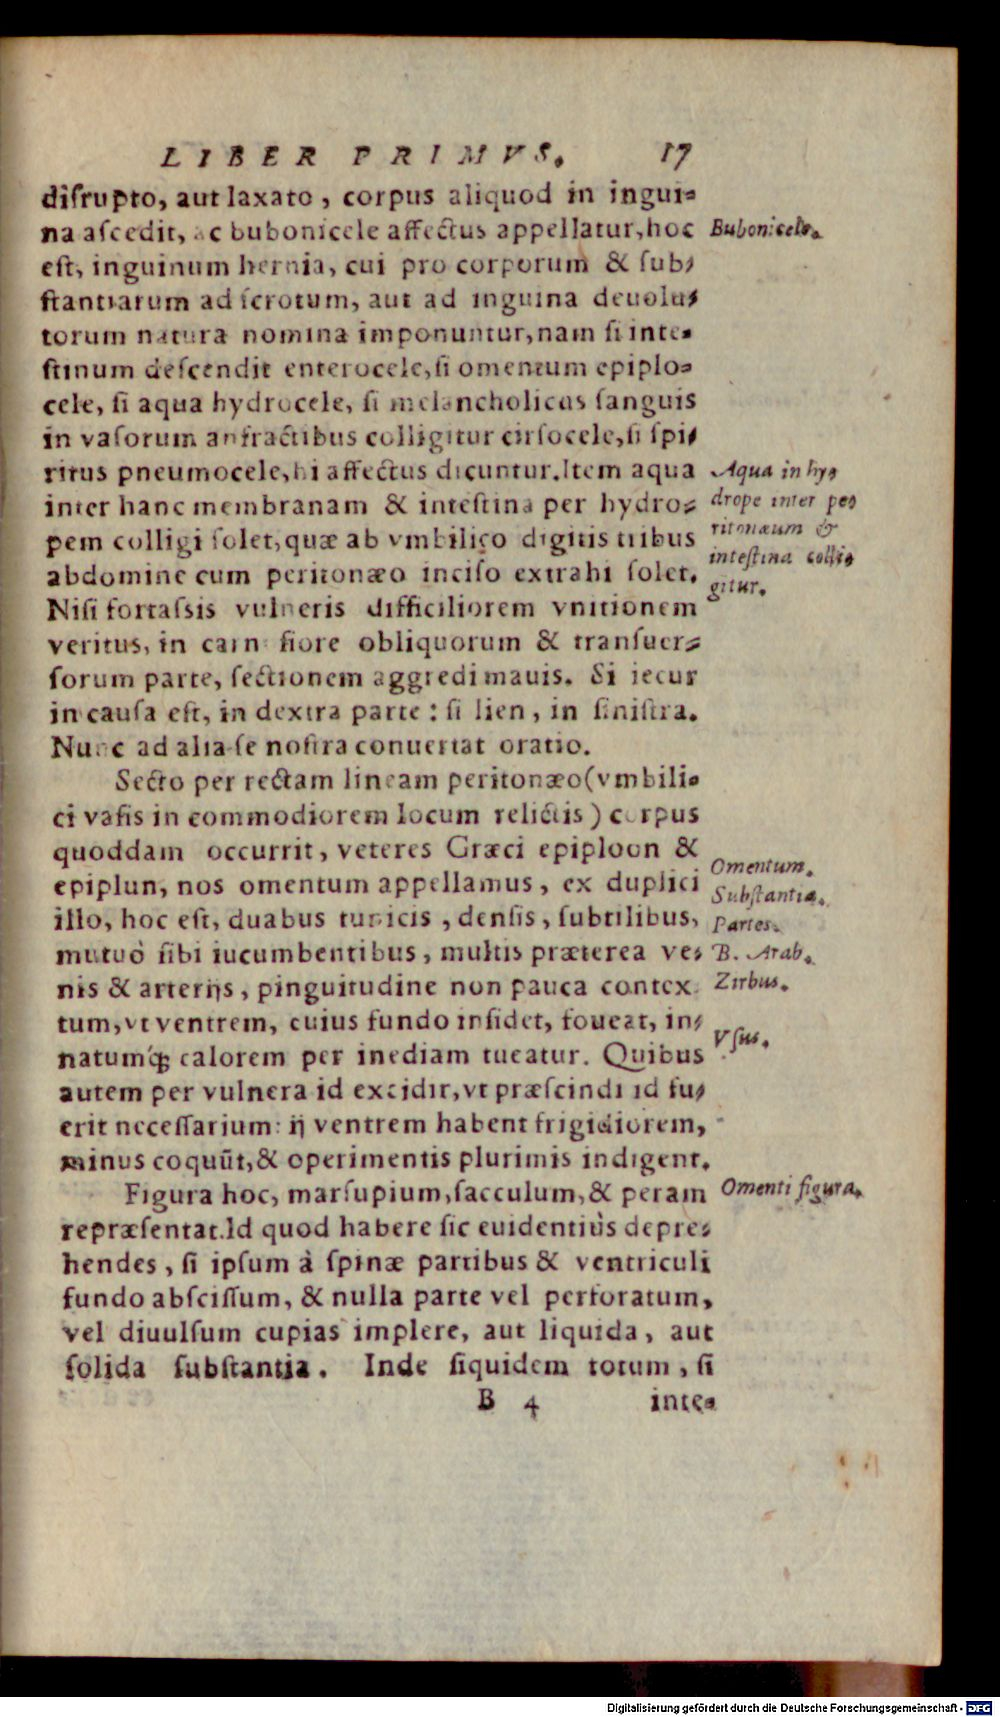 LIBER PRIMVS. 17
diſrupto, aut laxato, corpus aliquod in ingui-
na aſcedit, ac bubonicele affectus appellatur, hoc
eſt, inguinum hernia, cui pro corporum & ſub-
ſtantiarum ad ſcrotum, aut ad inguina deuolu-
torum natura nomina imponuntur, nam ſi inte-
ſtinum deſcendit enterocele, ſi omentum epiplo-
cele, ſi aqua hydrocele, ſi melancholicus ſanguis
in vaſorum anfractibus colligitur cirſocele, ſi ſpi-
ritus pneumocele, hi affectus dicuntur. Item aqua
inter hanc membranam & inteſtina per hydro-
pem colligi ſolet, quæ ab vmbilico digitis tribus
abdomine cum peritonæo inciſo extrahi ſolet.
Niſi fortaſsis vulneris difficiliorem vnitionem
veritus, in carnoſiore obliquorum & tranſuer-
ſorum parte, ſectionem aggredi mauis. Si iecur
in cauſa eſt, in dextra parte: ſi lien, in ſiniſtra.
Nunc ad alia ſe noſtra conuertat oratio.
Secto per rectam lineam peritonæo (vmbili-
ci vaſis in commodiorem locum relictis) corpus
quoddam occurrit, veteres Græci epiploon &
epiplun, nos omentum appellamus, ex duplici
illo, hoc eſt, duabus tunicis, denſis, ſubtilibus,
mutuò ſibi iucumbentibus, multis præterea ve-
nis & arterijs, pinguitudine non pauca contex
tum, vt ventrem, cuius fundo inſidet, foueat, in-
natumq́; calorem per inediam tueatur. Quibus
autem per vulnera id excidit, vt præſcindi id fu-
erit neceſſarium: ij ventrem habent frigidiorem,
minus coquũt, & operimentis plurimis indigent.
Figura hoc, marſupium, ſacculum, & peram
repræſentat. Id quod habere ſic euidentiùs depre-
hendes, ſi ipſum à ſpinæ partibus & ventriculi
fundo abſciſſum, & nulla parte vel perforatum,
vel diuulſum cupias implere, aut liquida, aut
ſolida ſubſtantia. Inde ſiquidem totum, ſi
B 4 inte-
Bubonicele.
Aqua in hy-
drope inter pe-
ritonæum &
inteſtina colli-
gitur.
Omentum.
Subſtantia.
Partes.
B. Arab.
Zirbus.
Vſus.
Omenti figura.
Digitalisierung gefördert durch die Deutsche Forschungsgemeinschaft - DFG